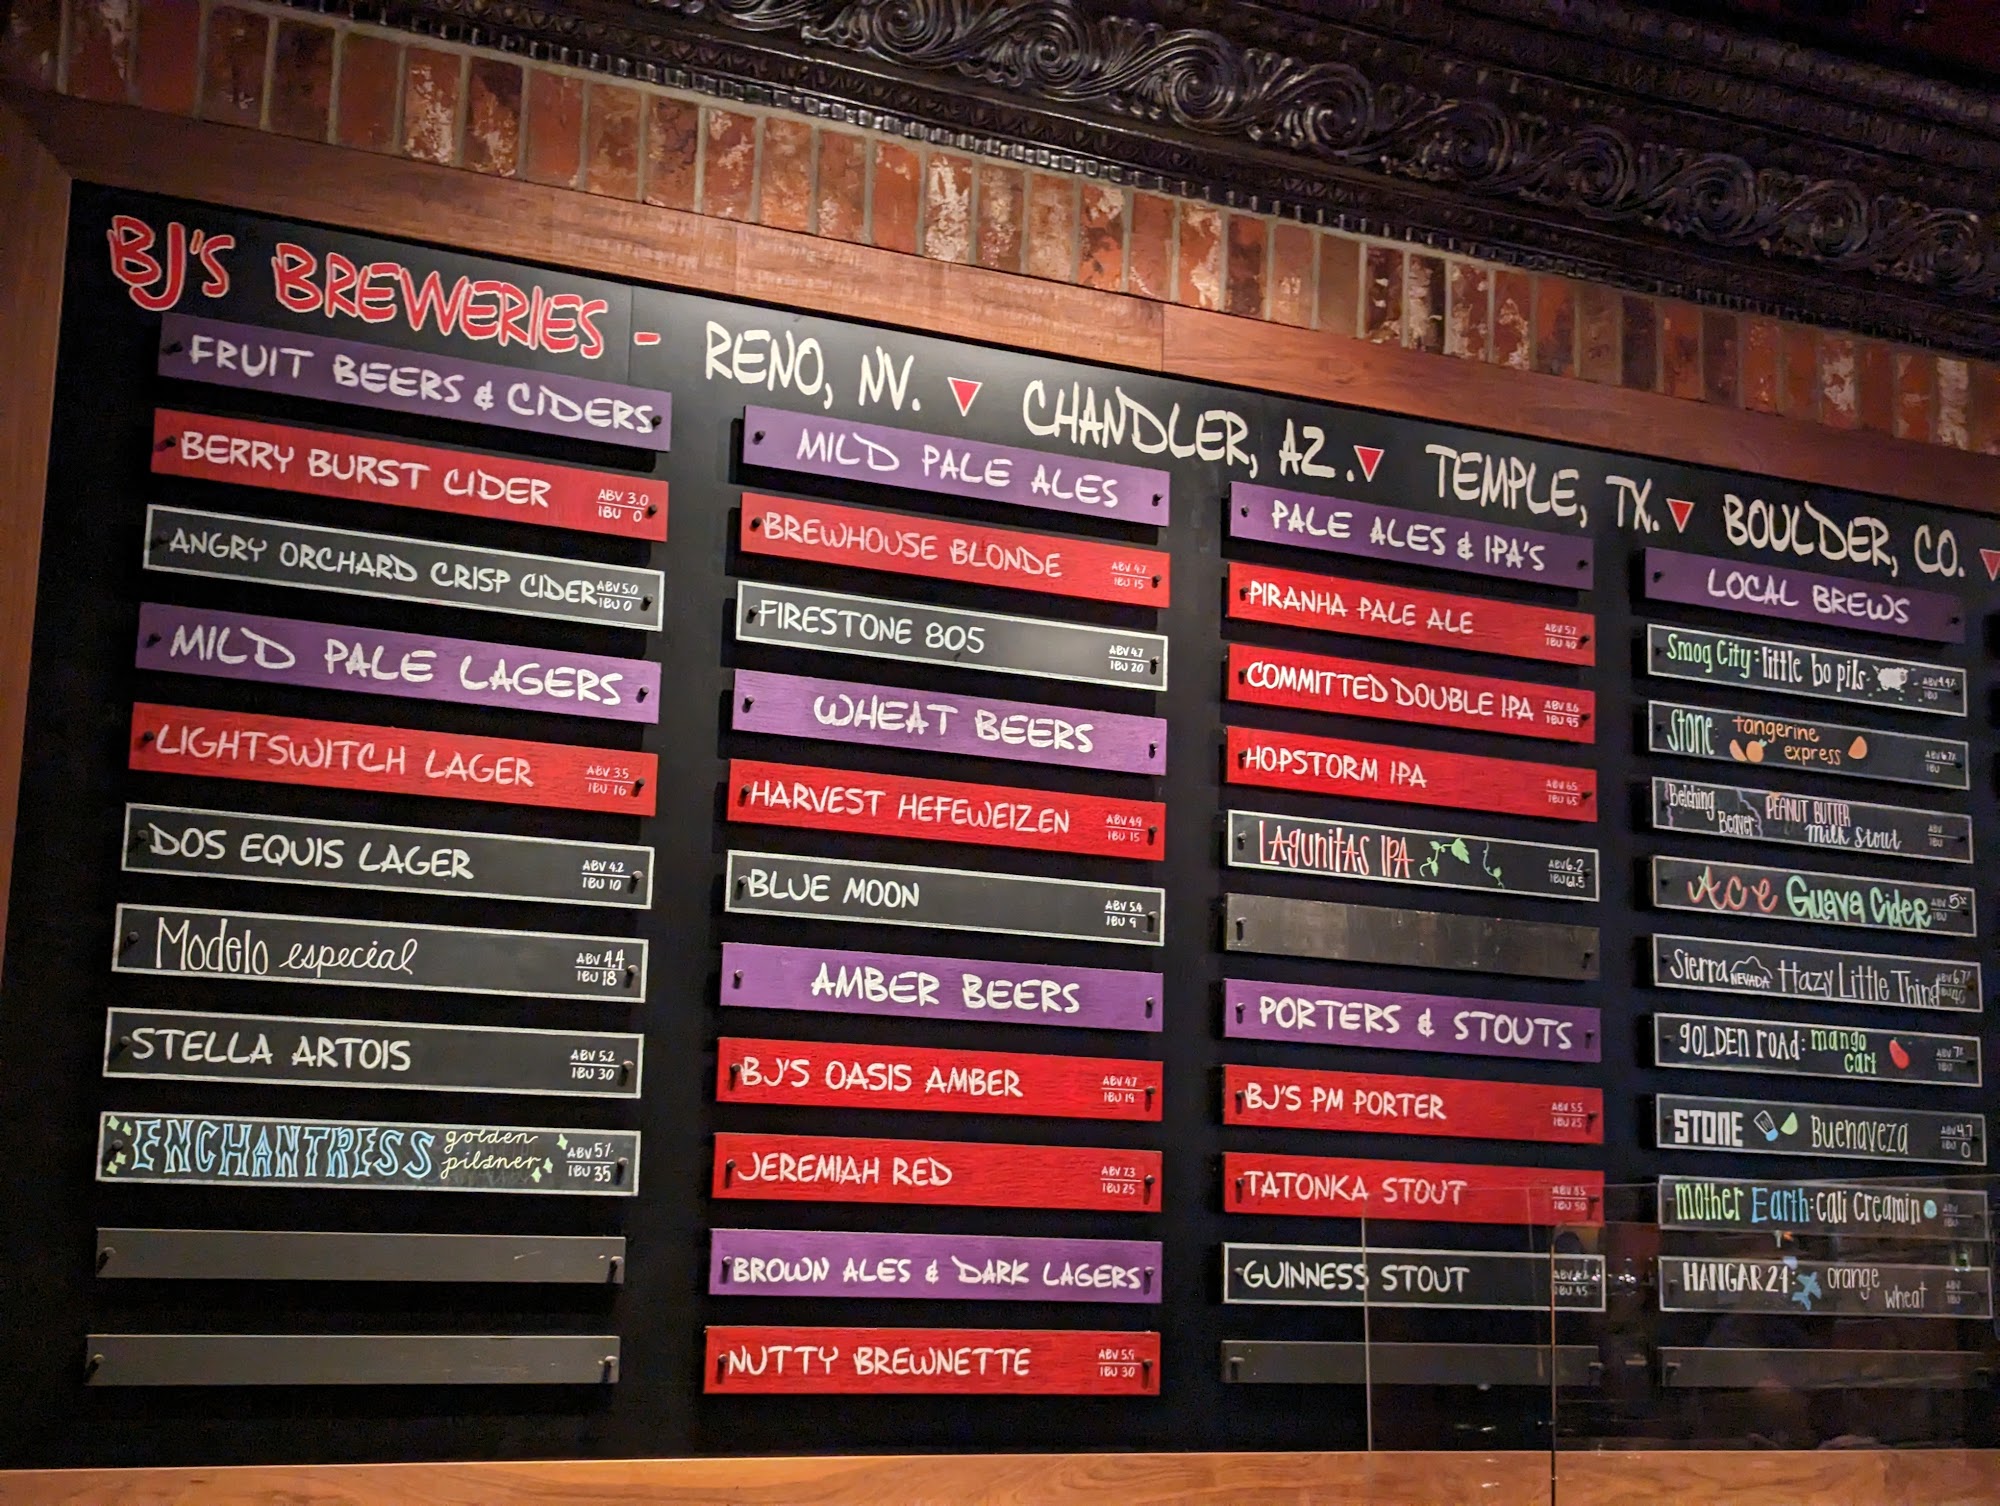 BJ'S BREWERIES - RENO, NV. CHANDLER, AZ. TEMPLE, TX. BOULDER, CO.
FRUIT BEERS & CIDERS
BERRY BURST CIDER ABV 3.0
IBU 0
ANGRY ORCHARD CRISP CIDER ABV 5.0
IBU 0
MILD PALE LAGERS
LIGHTSWITCH LAGER ABV 3.5
IBU 16
DOS EQUIS LAGER ABV 4.2
IBU 10
Modelo especial ABV 4.4
IBU 18
STELLA ARTOIS ABV 5.2
IBU 30
ENCHANTRESS golden pilsner ABV 5%
IBU 35
MILD PALE ALES
BREWHOUSE BLONDE ABV 4.7
IBU 15
FIRESTONE 805 ABV 4.7
IBU 20
WHEAT BEERS
HARVEST HEFEWEIZEN ABV 4.9
IBU 15
BLUE MOON ABV 5.4
IBU 9
AMBER BEERS
BJ'S OASIS AMBER ABV 4.7
IBU 19
JEREMIAH RED ABV 7.3
IBU 25
BROWN ALES & DARK LAGERS
NUTTY BREWNETTE ABV 5.9
IBU 30
PALE ALES & IPA'S
PIRANHA PALE ALE ABV 5.7
IBU 40
COMMITTED DOUBLE IPA ABV 8.6
IBU 95
HOPSTORM IPA ABV 6.5
IBU 65
LAGUNITAS IPA ABV 6.2
IBU 61.5
PORTERS & STOUTS
BJ'S PM PORTER ABV 5.5
IBU 25
TATONKA STOUT ABV 8.5
IBU 50
GUINNESS STOUT ABV
IBU 45
LOCAL BREWS
Smog City: little bo pils ABV 4.4%
IBU
Stone tangerine express ABV 6.7%
IBU
Belching Beaver PEANUT BUTTER Milk Stout ABV
IBU
Ace Guava Cider ABV 5%
IBU
Sierra NEVADA Hazy Little Thing ABV 6.7%
IBU 40
GOLDEN ROAD: mango cart ABV
IBU
STONE Buenaveza ABV 4.7
IBU 0
Mother Earth: cali creamin ABV
IBU
HANGAR 24: orange wheat ABV
IBU